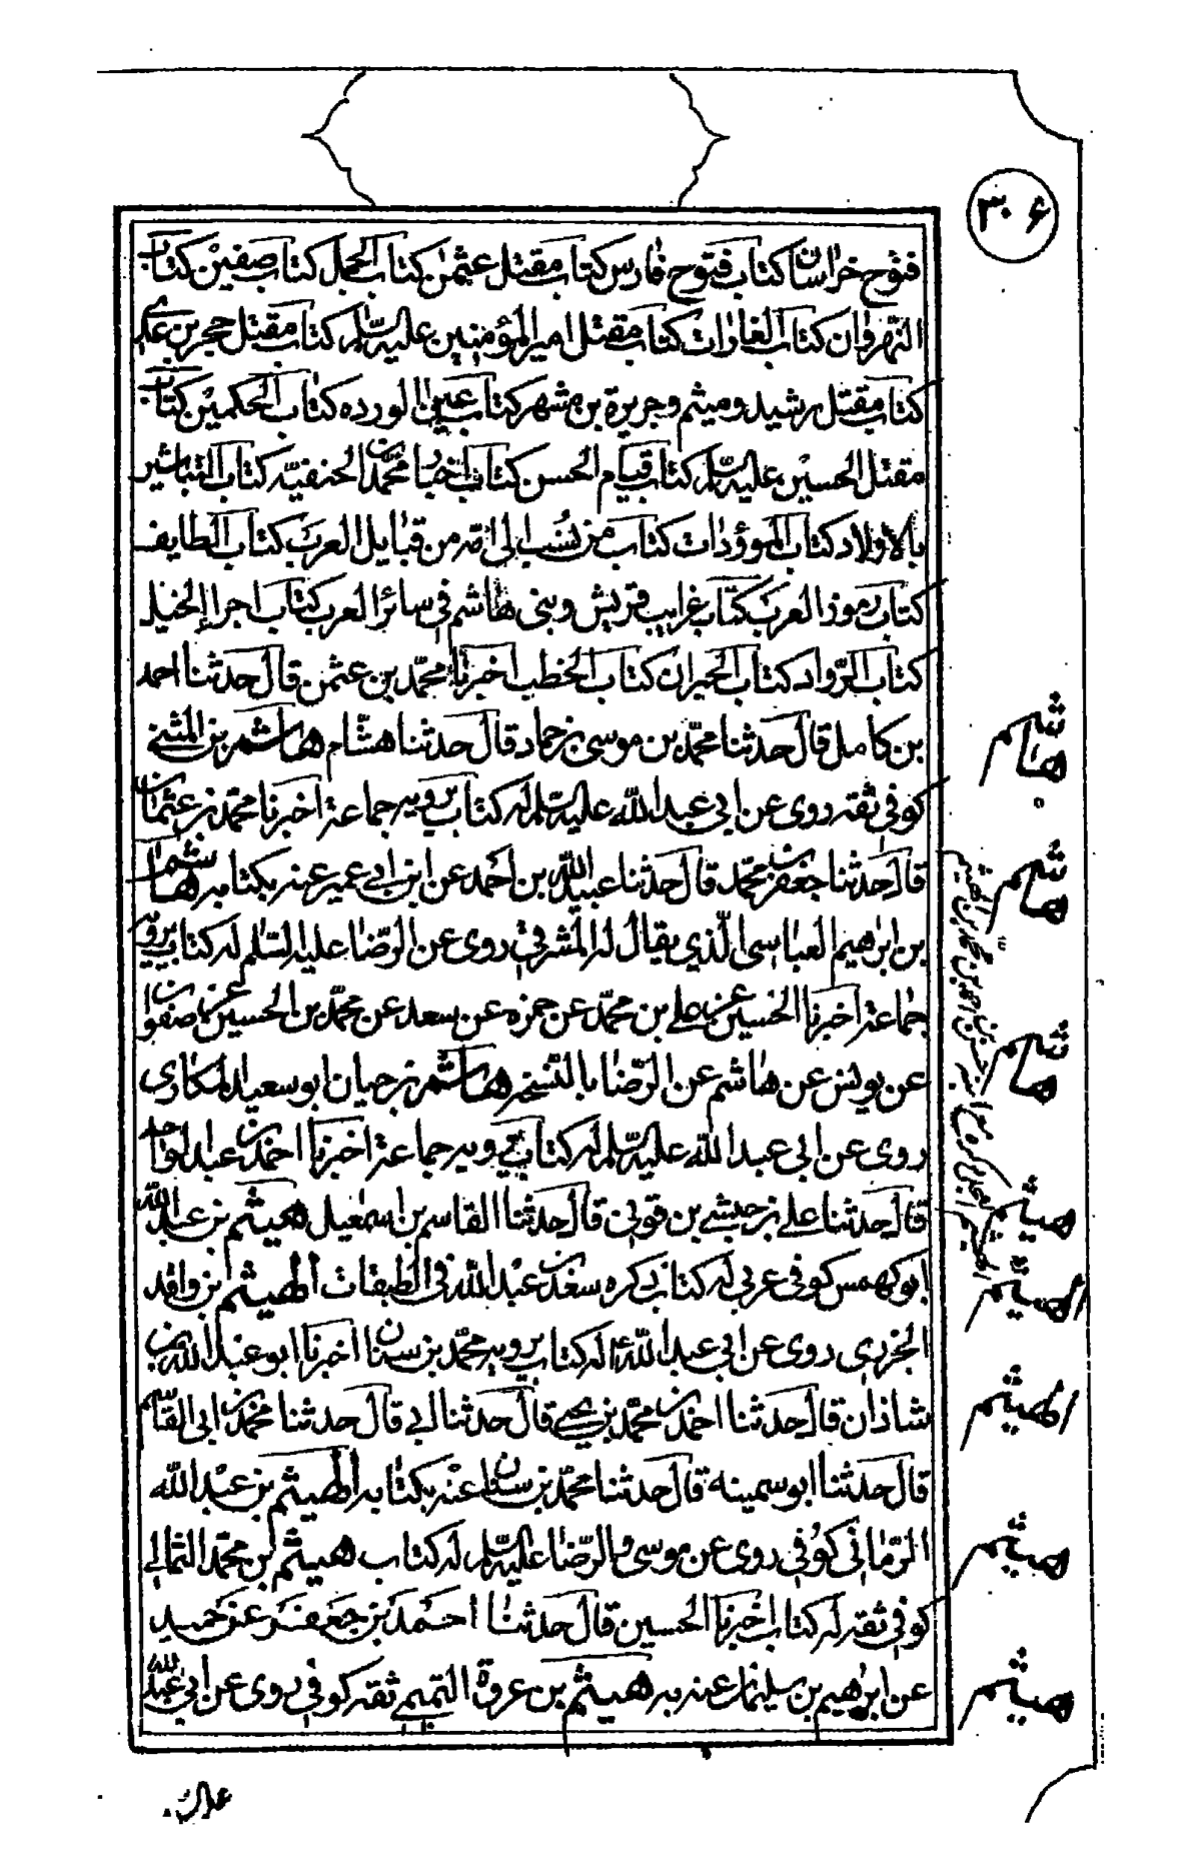 ۳۰۶
فتوح خراسان كتاب فتوح فارس كتاب مقتل عثمن كتاب الجمل كتاب صفين كتاب
النهروان كتاب الغارات كتاب مقتل امير المؤمنين عليه السلم كتاب مقتل حجر بن عدي
كتاب مقتل رشيد وميثم وجريرة بن مشهر كتاب عين الورده كتاب الحكمين كتاب
مقتل الحسين عليه السلم كتاب قيام الحسن كتاب اخبار محمد بن الحنفيه كتاب التباشير
بالاولاد كتاب الموؤدات كتاب من نسب الى امه من قبايل العرب كتاب الطايف
كتاب رموز العرب كتاب غرايب قريش وبنى هاشم في سائر العرب كتاب اجرا الخيل
كتاب الرواد كتاب الجيران كتاب الخطب اخبرنا محمد بن عثمن قال حدثنا احمد
بن كامل قال حدثنا محمد بن موسى بن حماد قال حدثنا هشام هاشم بن المثنى
كوفي ثقه روى عن ابي عبد الله عليه السلم له كتاب يرويه جماعة اخبرنا محمد بن عثمان
قال حدثنا جعفر بن محمد قال حدثنا عبيد الله بن احمد عن ابن ابي عمير عنه بكتابه هاشم
بن ابرهيم العباسى الذي يقال له المشرقي روى عن الرضا عليه السلم له كتاب يرويه
جماعة اخبرنا الحسين عن علي بن محمد عن حمزه عن سعد عن محمد بن الحسين عن صفوان
عن يونس عن هاشم عن الرضا بالنسخه هاشم بن حيان ابو سعيد المكارى
روى عن ابي عبد الله عليه السلم له كتاب يرويه جماعة اخبرنا احمد بن عبد الواحد
قال حدثنا علي بن حبشي بن قوني قال حدثنا القاسم بن اسمعيل هيثم بن عبد الله
ابو كهمس كوفي عربي له كتاب ذكره سعد بن عبد الله في الطبقات الهيثم بن واقد
الجزري روى عن ابي عبد الله ع له كتاب يرويه محمد بن سنان اخبرنا ابو عبد الله بن
شاذان قال حدثنا احمد بن محمد بن يحيى قال حدثنا ابي قال حدثنا محمد بن ابى القاسم
قال حدثنا ابو سمينه قال حدثنا محمد بن سنان عنه بكتابه الهيثم بن عبد الله
الرماني كوفي روى عن موسى والرضا عليه السلم له كتاب هيثم بن محمد الثمالي
كوفي ثقه له كتاب اخبرنا الحسين قال حدثنا احمد بن جعفر عن حميد
عن ابرهيم بن سليمان عنه به هيثم بن عروة التميمي ثقه كوفي روى عن ابي عبد الله
هاشم
هاشم
هاشم
هيثم
الهيثم
الهيثم
هيثم
هيثم